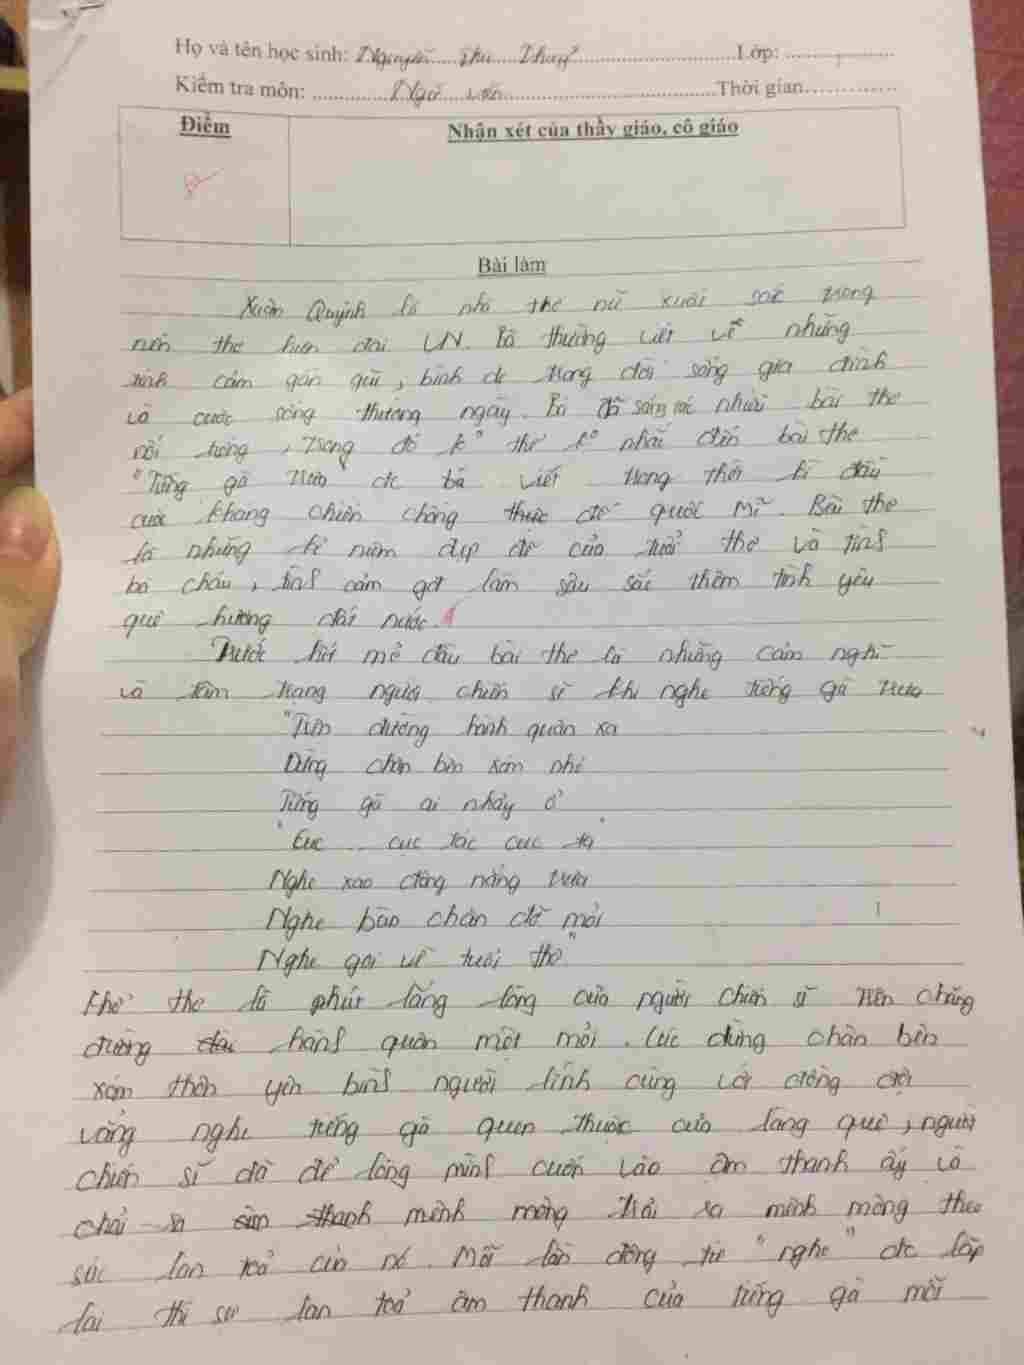 Họ và tên học sinh: Nguyễn Thu Thuỷ Lớp:
Kiểm tra môn: Ngữ văn Thời gian
Điểm
Nhận xét của thầy giáo, cô giáo
Bài làm
Xuân Quỳnh là nhà thơ nữ xuất sắc trong
nền thơ hiện đại VN. Bà thường viết về những
tình cảm gần gũi, bình dị trong đời sống gia đình
và cuộc sống thường ngày. Bà đã sáng tác nhiều bài thơ
nổi tiếng, trong đó k° thể k° nhắc đến bài thơ
"Tiếng gà trưa đc bà viết trong thời kì đầu
cuộc kháng chiến chống thực đế quốc Mĩ. Bài thơ
là những kỉ niệm đẹp đẽ của tuổi thơ và tình
bà cháu, tình cảm gđ làm sâu sắc thêm tình yêu
quê hương đất nước.
Trước hết mở đầu bài thơ là những cảm nghĩ
và tâm trạng người chiến sĩ khi nghe tiếng gà trưa
"Trên đường hành quân xa
Dừng chân bên xóm nhỏ
Tiếng gà ai nhảy ổ
"Cục ... cục tác cục ta"
Nghe xao động nắng trưa
Nghe bàn chân đỡ mỏi
Nghe gọi về tuổi thơ"
Khổ thơ là phút lắng lòng của người chiến sĩ trên chặng
đường hành quân mệt mỏi. Lúc dừng chân bên
xóm thôn yên bình người lính cùng với đồng đội
vẳng nghe tiếng gà quen thuộc của làng quê, người
chiến sĩ đã để lòng mình cuốn vào âm thanh ấy và
chải ra mênh mông trải ra mênh mông theo
sức lan toả của nó. Mỗi lần động từ "nghe" đc lặp
lại thì sự lan toả âm thanh của tiếng gà mỗi